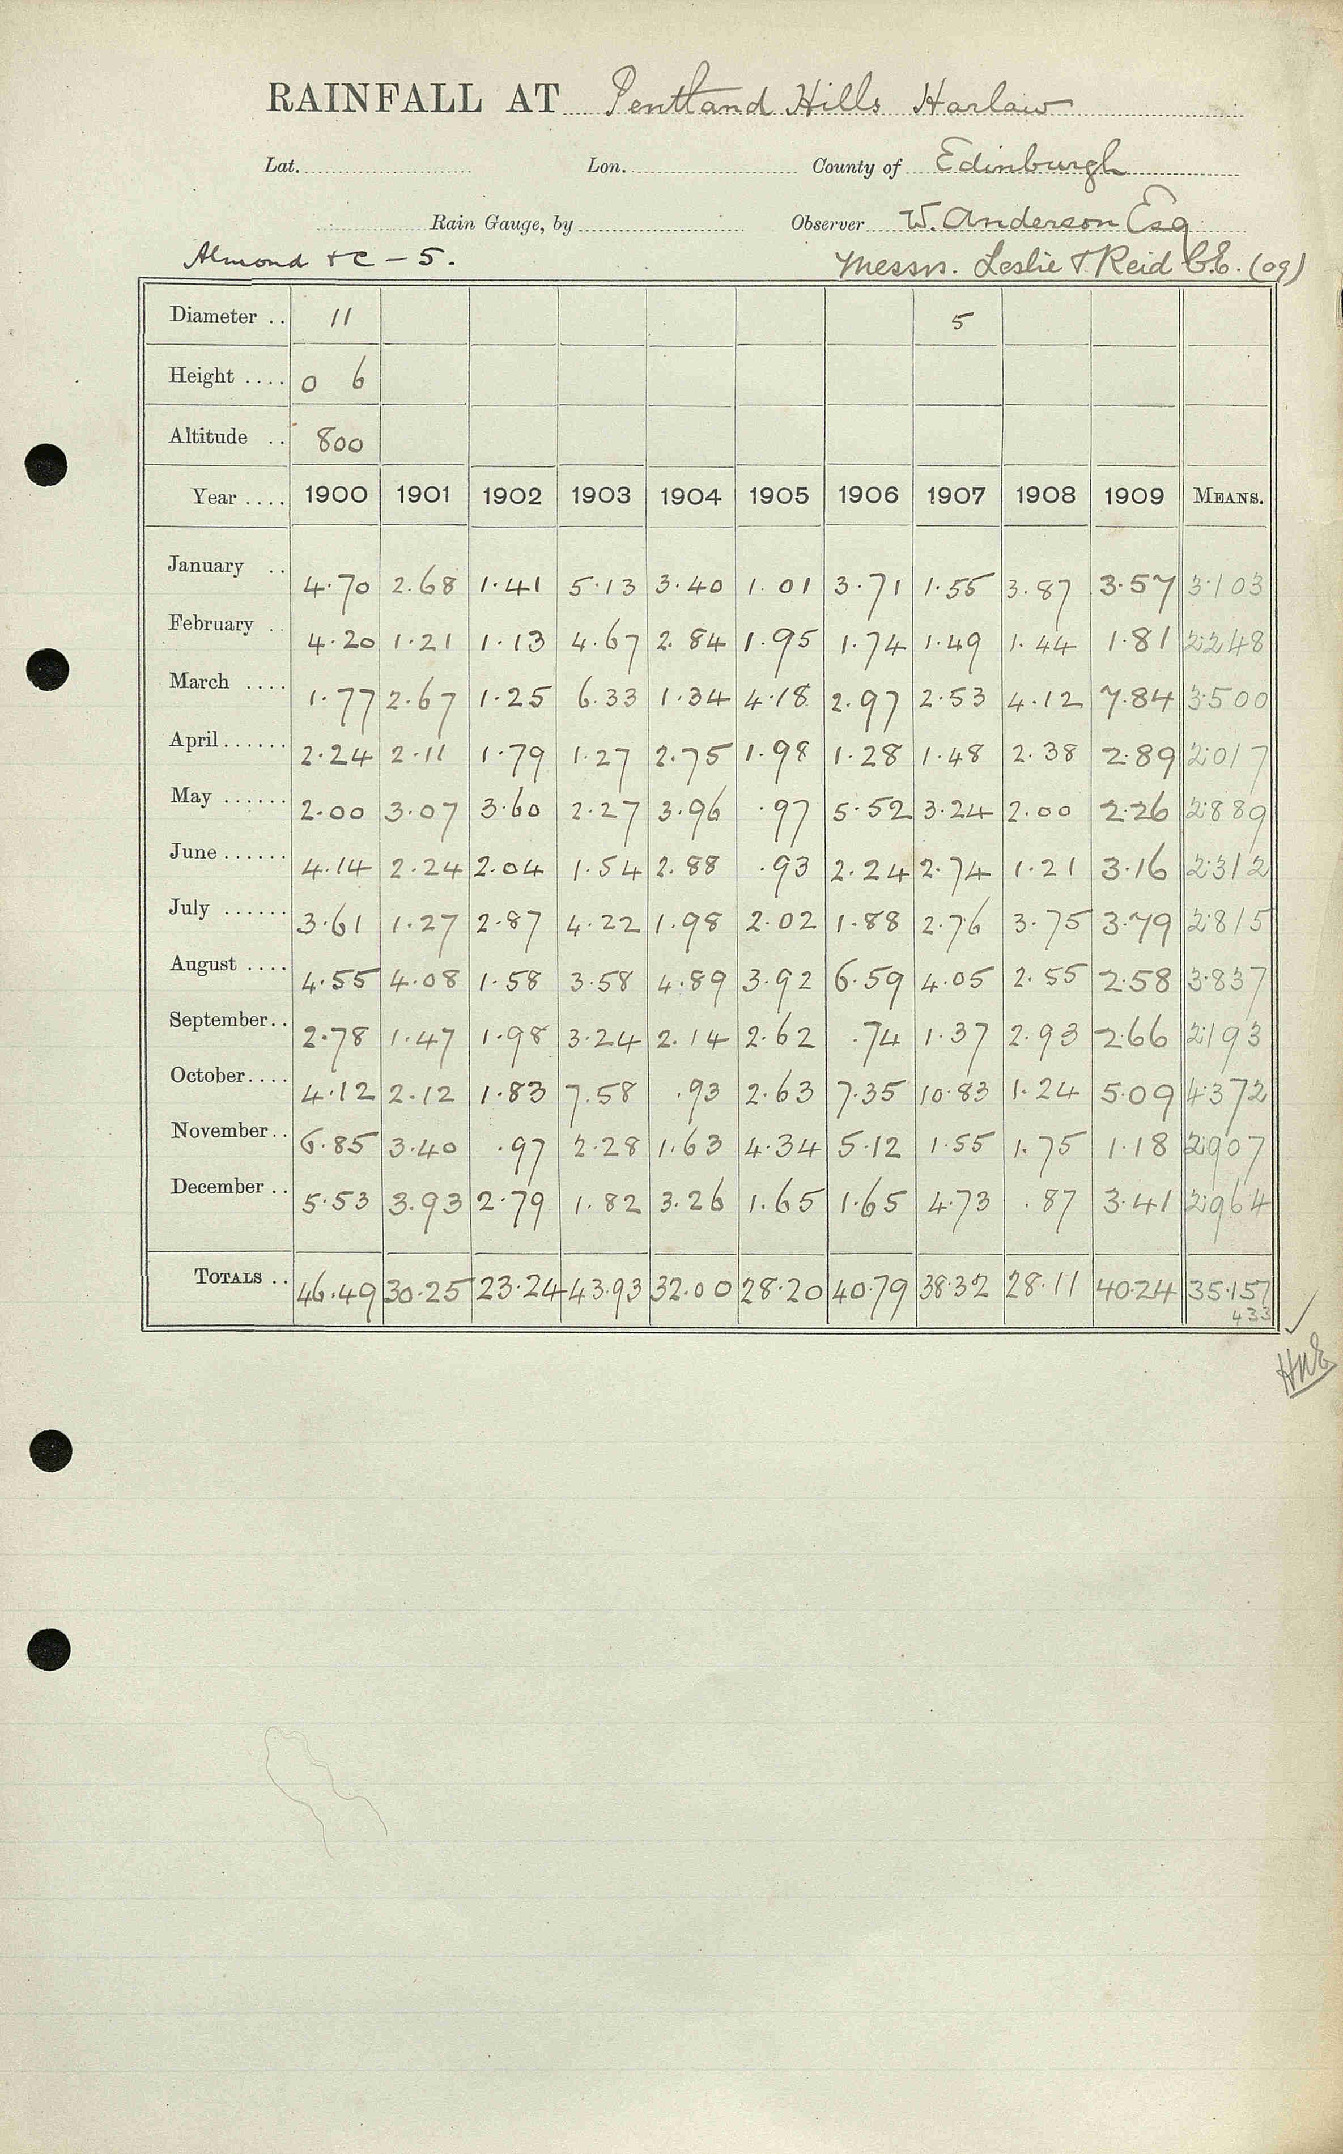 RAINFALL AT Pentland Hills Harlaw
Lat. Lon. County of Edinburgh
Rain Gauge, by Observer W. Anderson Esq
Almond &c - 5. Messrs. Leslie & Reid C.E. (09)
Diameter .. 11 5
Height .... 0 6
Altitude .. 800
Year .... 1900 1901 1902 1903 1904 1905 1906 1907 1908 1909 MEANS.
January .. 4.70 2.68 1.41 5.13 3.40 1.01 3.71 1.55 3.87 3.57 3.103
February .. 4.20 1.21 1.13 4.67 2.84 1.95 1.74 1.49 1.44 1.81 2.248
March .... 1.77 2.67 1.25 6.33 1.34 4.18 2.97 2.53 4.12 7.84 3.500
April...... 2.24 2.11 1.79 1.27 2.75 1.98 1.28 1.48 2.38 2.89 2.017
May ...... 2.00 3.07 3.60 2.27 3.96 .97 5.52 3.24 2.00 2.26 2.889
June ...... 4.14 2.24 2.04 1.54 2.88 .93 2.24 2.74 1.21 3.16 2.312
July ...... 3.61 1.27 2.87 4.22 1.98 2.02 1.88 2.76 3.75 3.79 2.815
August .... 4.55 4.08 1.58 3.58 4.89 3.92 6.59 4.05 2.55 2.58 3.837
September.. 2.78 1.47 1.98 3.24 2.14 2.62 .74 1.37 2.93 2.66 2.193
October.... 4.12 2.12 1.83 7.58 .93 2.63 7.35 10.83 1.24 5.09 4.372
November.. 6.85 3.40 .97 2.28 1.63 4.34 5.12 1.55 1.75 1.18 2.907
December .. 5.53 3.93 2.79 1.82 3.26 1.65 1.65 4.73 .87 3.41 2.964
TOTALS .. 46.49 30.25 23.24 43.93 32.00 28.20 40.79 38.32 28.11 40.24 35.157
433